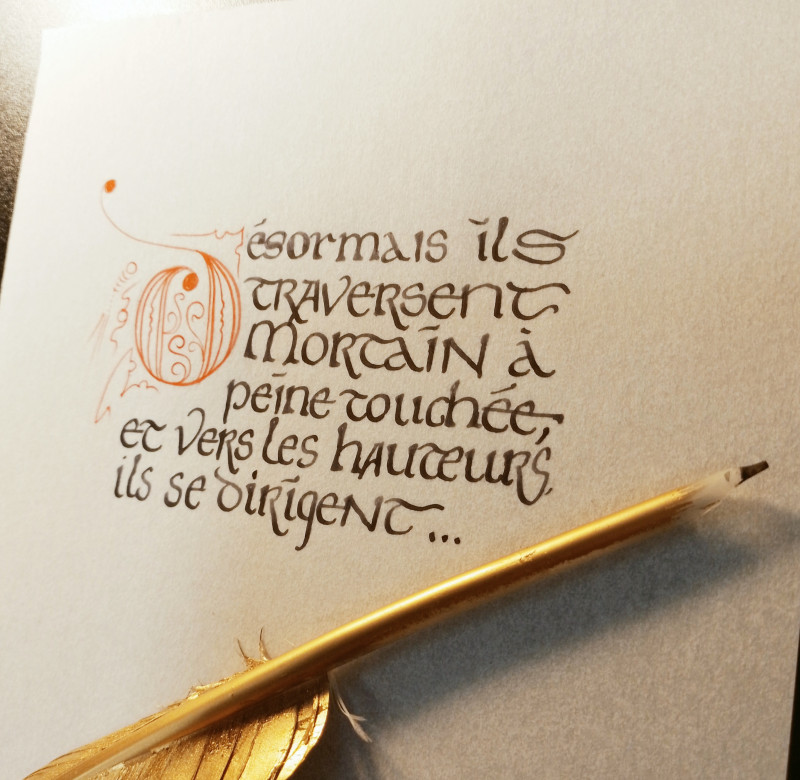 Désormais ils
traversent
Mortain à
peine touchée,
et vers les hauteurs,
ils se dirigent...